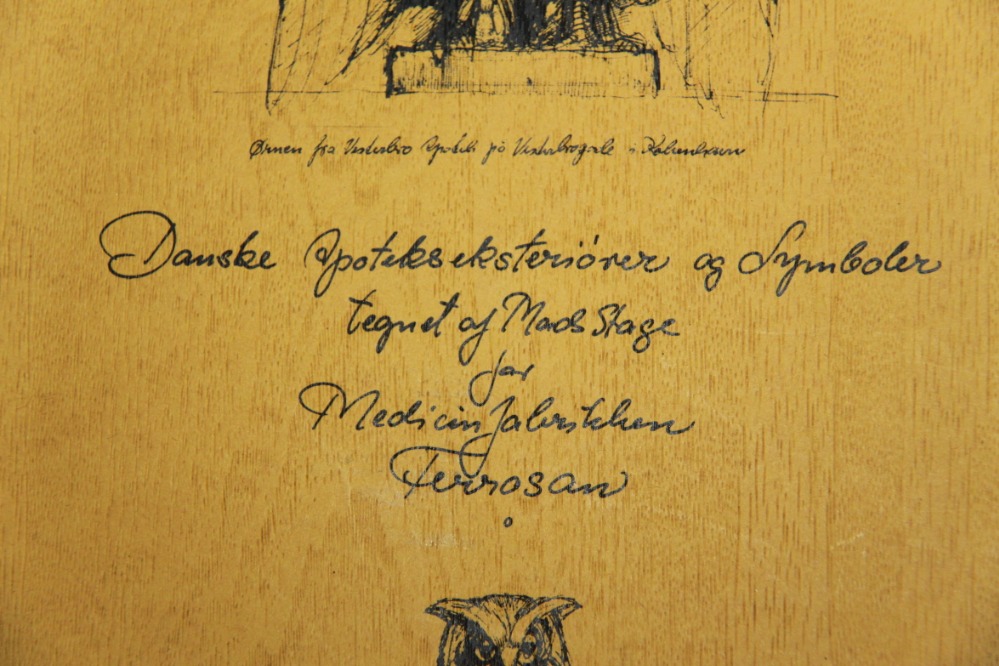 Ørnen fra Vesterbro Apotek på Vesterbrogade i København
Danske Apotekseksteriører og Symboler
tegnet af Mads Stage
for
Medicinfabrikken
Ferrosan